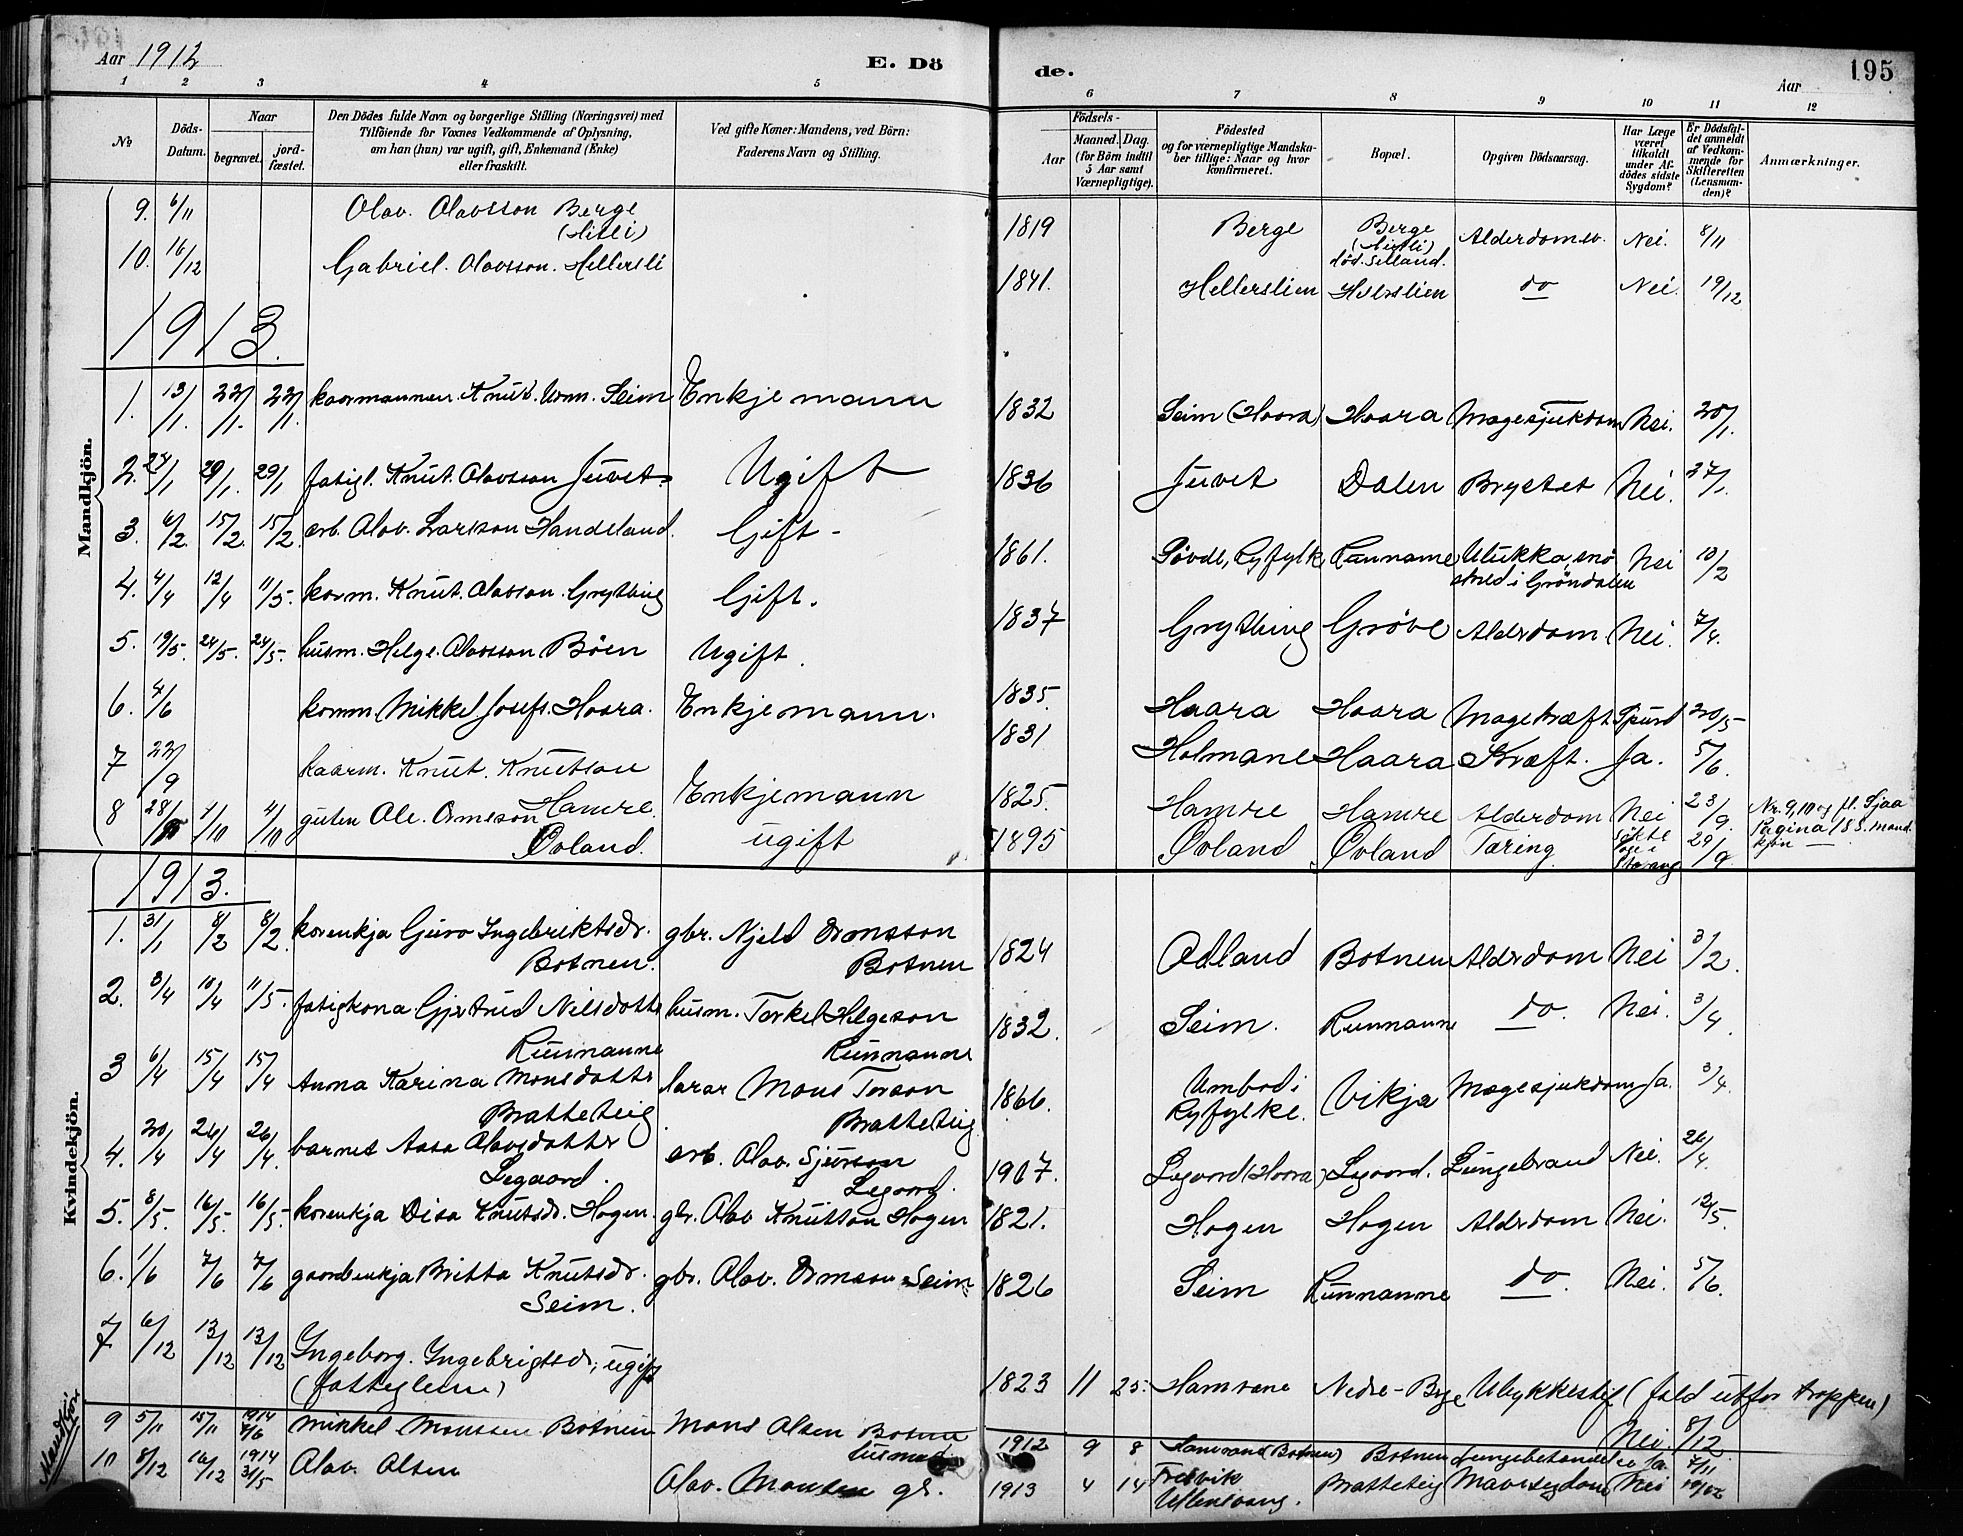 Aar 1912
E. Dö
de.
Aar
195
1 2 3 4 5 6 7 8 9 10 11 12
№
Döds-Datum.
Naar
begravet. jordfæstet.
Den Dödes fulde Navn og borgerlige Stilling (Næringsvei) med
Tilföiende for Voxnes Vedkommende af Oplysning,
om han (hun) var ugift, gift, Enkemand (Enke)
eller fraskilt.
Ved gifte Koner: Mandens, ved Börn:
Faderens Navn og Stilling.
Födsels-
Aar Maaned. Dag.
(for Börn indtil
5 Aar samt
Værnepligtige).
Födested
og for værnepligtige Mandskaber tillige: Naar og hvor
konfirmeret.
Bopæl.
Opgiven Dödsaarsag.
Har Læge været tilkaldt under Afdödes sidste Sygdom?
Er Dödsfaldet anmeldt af Vedkommende for Skifteretten (Lensmanden)?
Anmærkninger.
Mandkjön.
9. 6/11 Olav. Olavsson Berge 1819 Berge Berge Alderdomsv. Nei. 8/11
död. Selland.
10. 16/12 Gabriel. Olavsson. Hellersli 1841. Hellerslien do Nei. 19/12
1913.
1. 13/1. 22/1. 22/1. Knut. Orm. Seim Enkjemann 1832 Seim (Hoara) Hoara Magesjukdom Nei. 20/1.
2. 24/1 29/1. 29/1 fatigl. Knut. Olavsson Juvet Ugift 1836 Juvet Dalen Nei. 27/1.
3. 6/2 15/2. 15/2. arb. Olav. Larsson Handeland. Gift - 1861. Søvde, Ryfylk Runname Ulukka, snø Nei 10/2
i Gröndalen
4. 4/4 12/4 11/5. korm. Knut. Olavson. Grytting Gift. 1837 Grytting Grøve Alderdom Nei. 7/4.
5. 19/5. 24/5. 24/5. husm. Helge. Olavsson Böen Ugift. 1835. Haara Hoara Magekræft 20/5
6. 4/6 Mikkel Josefs. Hoara. Enkjemann. 1831 Holmane Haara Kræft. Ja. 5/6.
7 22/9 kaarm. Knut. Knutson Hamre. Enkjemann 1825. Hamre Hamre Alderdom Nei 23/9. Nr. 9, 10 og fl. Sjaa
Pagina 188. mandkjøn
8 28/9 4/10 4/10 guten Ole. Ormson Øvland. ugift 1895 Øvland Øvland Tæring 29/9
Kvindekjön.
1913.
1. 31/1 8/2 8/2. korenkja Guro Ingebriktsdr. gbr. Njeld Ormsson 1824 Odland Botnen Alderdom Nei 3/2.
Botnen. Botnen
2. 3/4 10/4 11/5. fatigkona Gjertrud Nilsdotter husm. Torkel Helgeson 1832. Seim. Runnanne do. Nei. 3/4
Runnanne Runnanne
3 6/4 15/4 15/4 Anna Karina Monsdotter lærar Mons Torson 1866. Ryfylke. Vikja Magesjukdom Ja. 3/4.
Bratteteig Bratteteig
4. 20/4 26/4 26/4. barnet Aasa Olavsdotter arb. Olav. Sjurson 1907. Legaard (Hoara) Legaard. Lungebrand Nei. 26/4.
Legaard. Legaard.
5. 8/5. 16/5. 16/5. korenkja Disa Knutsdr. Hogen. Olav Knutson Hogen 1821. Hogen Hogen Alderdom Nei. 12/5.
6. 1/6 7/6 7/6 gaardenkja Britta Knutsdr. gbr. Olav. Ormson Seim 1826 Seim Runnanne do. Nei. 5/6.
Seim.
7 6/12 13/12 13/12 Ingeborg. Ingebrigtsdr., ugift 1823 11 25. Hamrane Nedre- Ulykkestif (fald utfor trappen)
Nei. 8/12
Mandkjön
9 5/11 15/11 1914 7/6 Mikkel Monssen Botnen Mons Olsen Botnen husmand 1912 9 8 (Botnen) Botnen Ja. 7/11
10 8/12 16/12 1914 31/5 Olav. Olsen Olav. Monsen gr. 1913 4 14 Ullensvang. Bratteteig Mavesygdom Nei 10/12